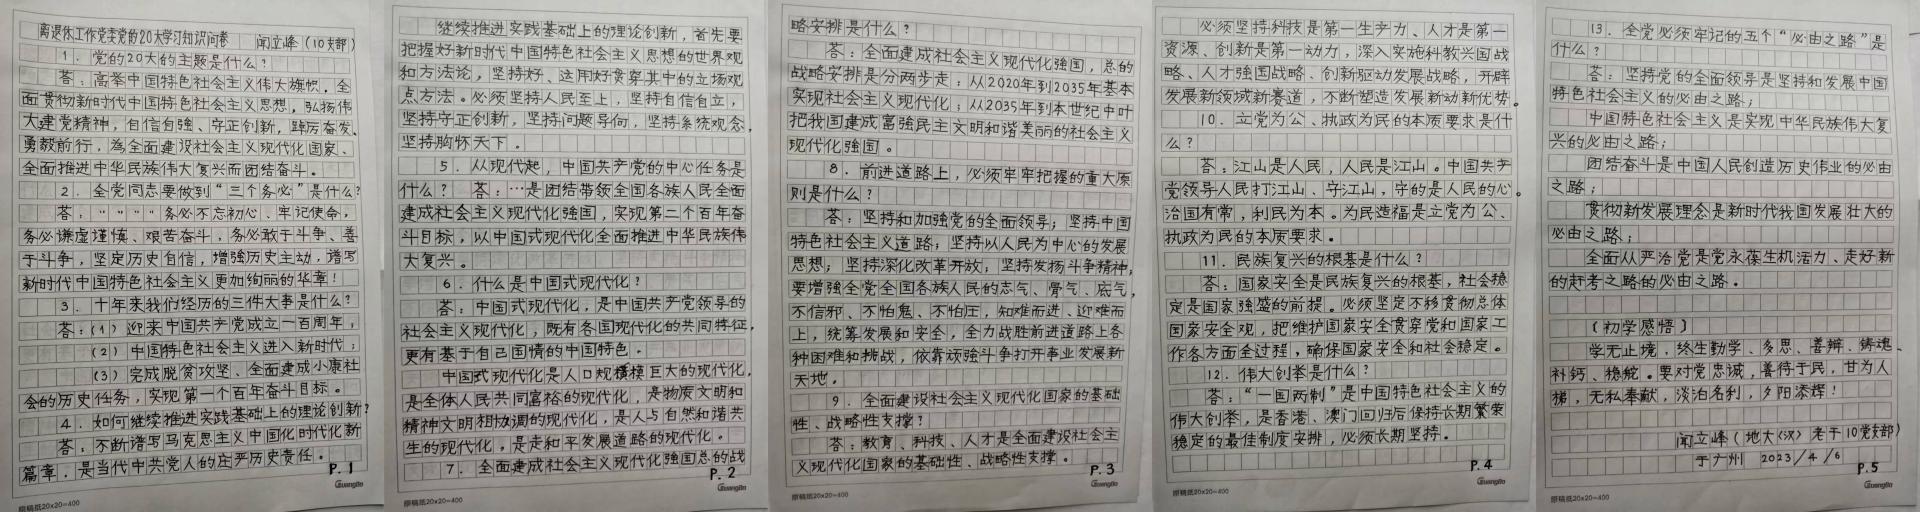 离退休工作党委党的20大学习知识问卷 闻立峰(10支部)
1. 党的20大的主题是什么?
答:高举中国特色社会主义伟大旗帜,全
面贯彻新时代中国特色社会主义思想,弘扬伟
大建党精神,自信自强、守正创新,踔厉奋发、
勇毅前行,为全面建设社会主义现代化国家、
全面推进中华民族伟大复兴而团结奋斗。
2. 全党同志要做到“三个务必”是什么?
答:" " " " 务必不忘初心、牢记使命,
务必谦虚谨慎、艰苦奋斗,务必敢于斗争、善
于斗争,坚定历史自信,增强历史主动,谱写
新时代中国特色社会主义更加绚丽的华章!
3. 十年来我们经历的三件大事是什么?
答:(1)迎来中国共产党成立一百周年;
(2)中国特色社会主义进入新时代;
(3)完成脱贫攻坚、全面建成小康社
会的历史任务,实现第一个百年奋斗目标。
4. 如何继续推进实践基础上的理论创新?
答:不断谱写马克思主义中国化时代化新
篇章,是当代中共党人的庄严历史责任。
P.1
Guangbo
原稿纸20x20=400
继续推进实践基础上的理论创新,首先要
把握好新时代中国特色社会主义思想的世界观
和方法论,坚持好、运用好贯穿其中的立场观
点方法。必须坚持人民至上,坚持自信自立,
坚持守正创新,坚持问题导向,坚持系统观念,
坚持胸怀天下。
5. 从现代起,中国共产党的中心任务是
什么? 答:…是团结带领全国各族人民全面
建成社会主义现代化强国,实现第二个百年奋
斗目标,以中国式现代化全面推进中华民族伟
大复兴。
6. 什么是中国式现代化?
答:中国式现代化,是中国共产党领导的
社会主义现代化,既有各国现代化的共同特征,
更有基于自己国情的中国特色。
中国式现代化是人口规模巨大的现代化,
是全体人民共同富裕的现代化,是物质文明和
精神文明相协调的现代化,是人与自然和谐共
生的现代化,是走和平发展道路的现代化。
7. 全面建成社会主义现代化强国总的战
P.2
Guangbo
原稿纸20x20=400
略安排是什么?
答:全面建成社会主义现代化强国,总的
战略安排是分两步走:从2020年到2035年基本
实现社会主义现代化;从2035年到本世纪中叶
把我国建成富强民主文明和谐美丽的社会主义
现代化强国。
8. 前进道路上,必须牢牢把握的重大原
则是什么?
答:坚持和加强党的全面领导;坚持中国
特色社会主义道路;坚持以人民为中心的发展
思想;坚持深化改革开放;坚持发扬斗争精神,
要增强全党全国各族人民的志气、骨气、底气,
不信邪、不怕鬼、不怕压,知难而进、迎难而
上,统筹发展和安全,全力战胜前进道路上各
种困难和挑战,依靠顽强斗争打开事业发展新
天地。
9. 全面建设社会主义现代化国家的基础
性、战略性支撑?
答:教育、科技、人才是全面建设社会主
义现代化国家的基础性、战略性支撑。
P.3
Guangbo
原稿纸20x20=400
必须坚持科技是第一生产力、人才是第一
资源、创新是第一动力,深入实施科教兴国战
略、人才强国战略、创新驱动发展战略,开辟
发展新领域新赛道,不断塑造发展新动新优势。
10. 立党为公、执政为民的本质要求是什
么?
答:江山是人民,人民是江山。中国共产
党领导人民打江山、守江山,守的是人民的心。
治国有常,利民为本。为民造福是立党为公、
执政为民的本质要求。
11. 民族复兴的根基是什么?
答:国家安全是民族复兴的根基,社会稳
定是国家强盛的前提。必须坚定不移贯彻总体
国家安全观,把维护国家安全贯穿党和国家工
作各方面全过程,确保国家安全和社会稳定。
12. 伟大创举是什么?
答:“一国两制”是中国特色社会主义的
伟大创举,是香港、澳门回归后保持长期繁荣
稳定的最佳制度安排,必须长期坚持。
P.4
Guangbo
原稿纸20x20=400
13. 全党必须牢记的五个“必由之路”是
什么?
答:坚持党的全面领导是坚持和发展中国
特色社会主义的必由之路;
中国特色社会主义是实现中华民族伟大复
兴的必由之路;
团结奋斗是中国人民创造历史伟业的必由
之路;
贯彻新发展理念是新时代我国发展壮大的
必由之路;
全面从严治党是党永葆生机活力、走好新
的赶考之路的必由之路。
(初学感悟)
学无止境,终生勤学、多思、善辨、铸魂、
补钙、稳舵。要对党忠诚,善待于民,甘为人
梯,无私奉献,淡泊名利,夕阳添辉!
闻立峰(地大<汉>老干10党支部)
于广州 2023/4/6
P.5
Guangbo
原稿纸20x20=400